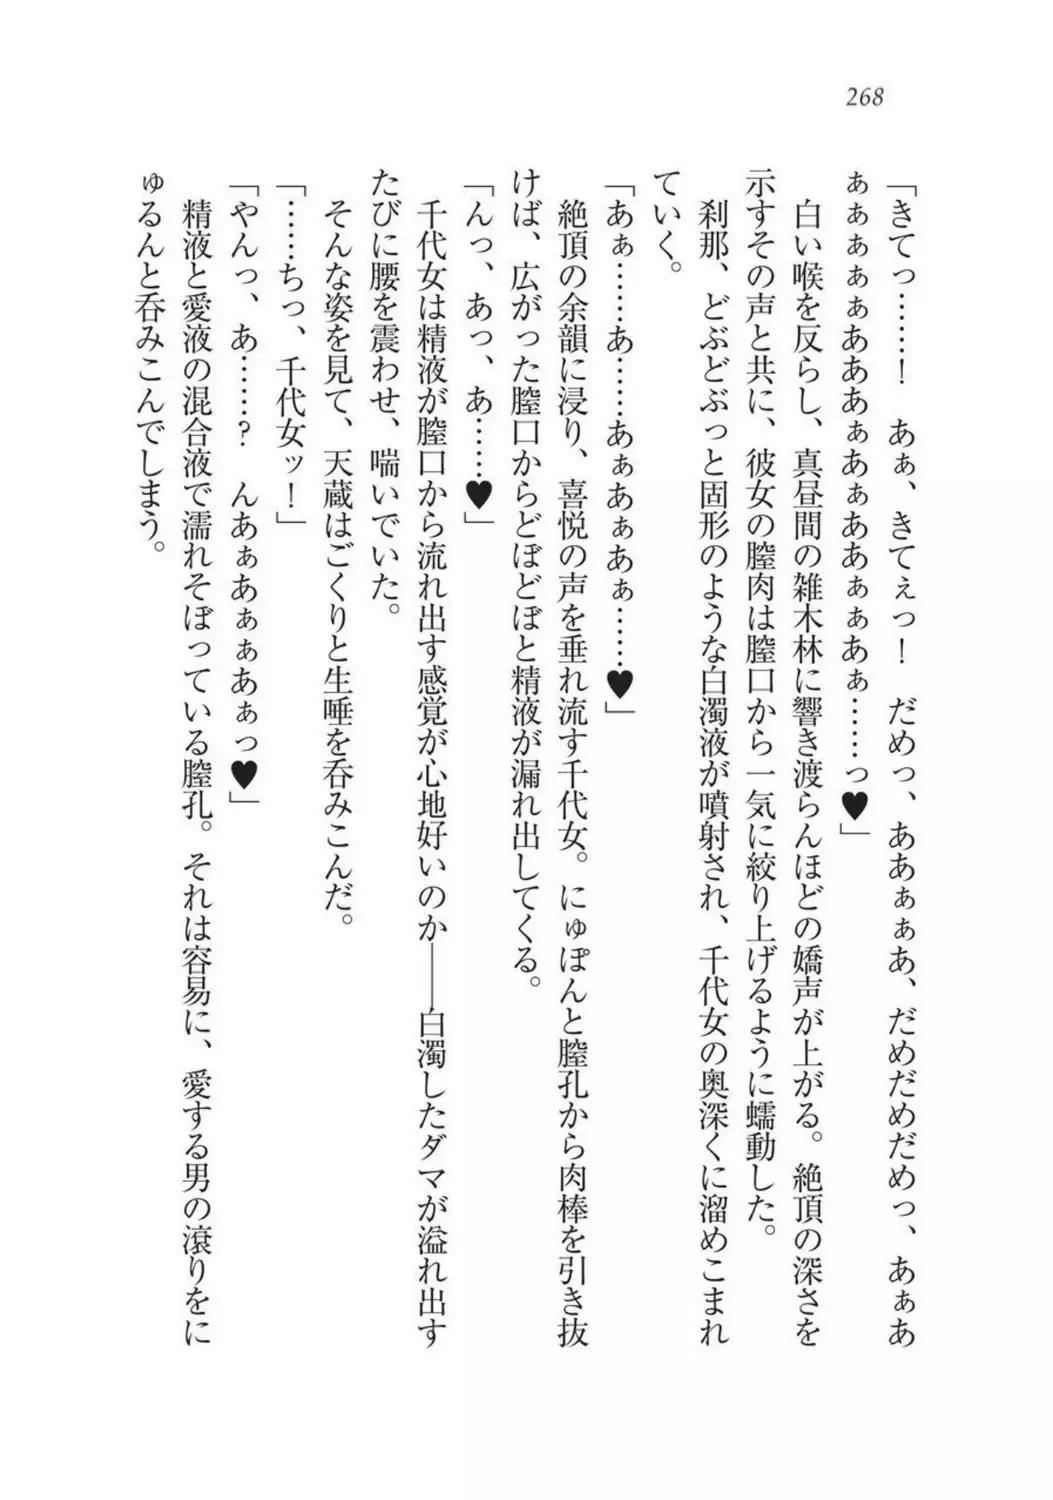 268
「きてっ……！　あぁ、きてぇっ！　だめっ、ああぁぁあ、だめだめだめっ、あぁあ
ぁぁぁぁぁあああぁあぁああぁぁあぁ……っ♥」
　白い喉を反らし、真昼間の雑木林に響き渡らんほどの嬌声が上がる。絶頂の深さを
示すその声と共に、彼女の膣肉は膣口から一気に絞り上げるように蠕動した。
　刹那、どぶどぶっと固形のような白濁液が噴射され、千代女の奥深くに溜めこまれ
ていく。
「あぁ……あ……あぁあぁあぁ……♥」
　絶頂の余韻に浸り、喜悦の声を垂れ流す千代女。にゅぽんと膣孔から肉棒を引き抜
けば、広がった膣口からどぼどぼと精液が漏れ出してくる。
「んっ、あっ、あ……♥」
　千代女は精液が膣口から流れ出す感覚が心地好いのか――白濁したダマが溢れ出す
たびに腰を震わせ、喘いでいた。
　そんな姿を見て、天蔵はごくりと生唾を呑みこんだ。
「……ちっ、千代女ッ！」
「やんっ、あ……？　んあぁあぁぁあぁっ♥」
　精液と愛液の混合液で濡れそぼっている膣孔。それは容易に、愛する男の滾りをに
ゅるんと呑みこんでしまう。